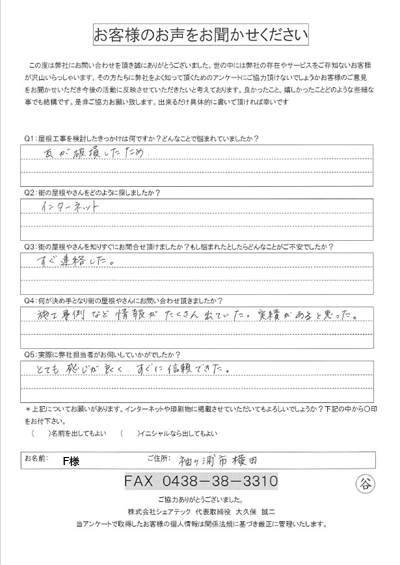 お客様のお声をお聞かせください
この度は弊社にお問い合わせを頂き誠にありがとうございました。世の中には弊社の存在やサービスをご存知ないお客様
が沢山いらっしゃいます。その方たちに弊社をよく知って頂くためのアンケートにご協力頂けないでしょうかお客様のご意見
をお聞かせいただき今後の活動に反映させていただきたいと考えております。良かったこと、嬉しかったことどのような些細な
事でも結構です。是非ご協力お願い致します。出来るだけ具体的に書いて頂ければ幸いです
Q1：屋根工事を検討したきっかけは何ですか？どんなことで悩まれていましたか？
瓦が破損したため
Q2：街の屋根やさんをどのように探しましたか？
インターネット
Q3：街の屋根やさんを知りすぐにお問合せ頂けましたか？もし悩まれたとしたらどんなことがご不安でしたか？
すぐ連絡した。
Q4：何が決め手となり街の屋根やさんにお問い合わせ頂きましたか？
施工事例など情報がたくさん出ていた。実績があると思った。
Q5：実際に弊社担当者がお伺いしていかがでしたか？
とても感じが良くすぐに信頼できた。
＊上記についてお願いがあります。インターネットや印刷物に掲載させていただいてもよろしいでしょうか？下記の中から〇印
をお付け下さい。
（　）名前を出してもよい　（　）イニシャルなら出してもよい
お名前： F様 ご住所： 袖ケ浦市横田
FAX 0438－38－3310
谷
ご協力ありがとうございました。
株式会社シェアテック 代表取締役 大久保 誠二
当アンケートで取得したお客様の個人情報は関係法規に基づき厳正に管理いたします。